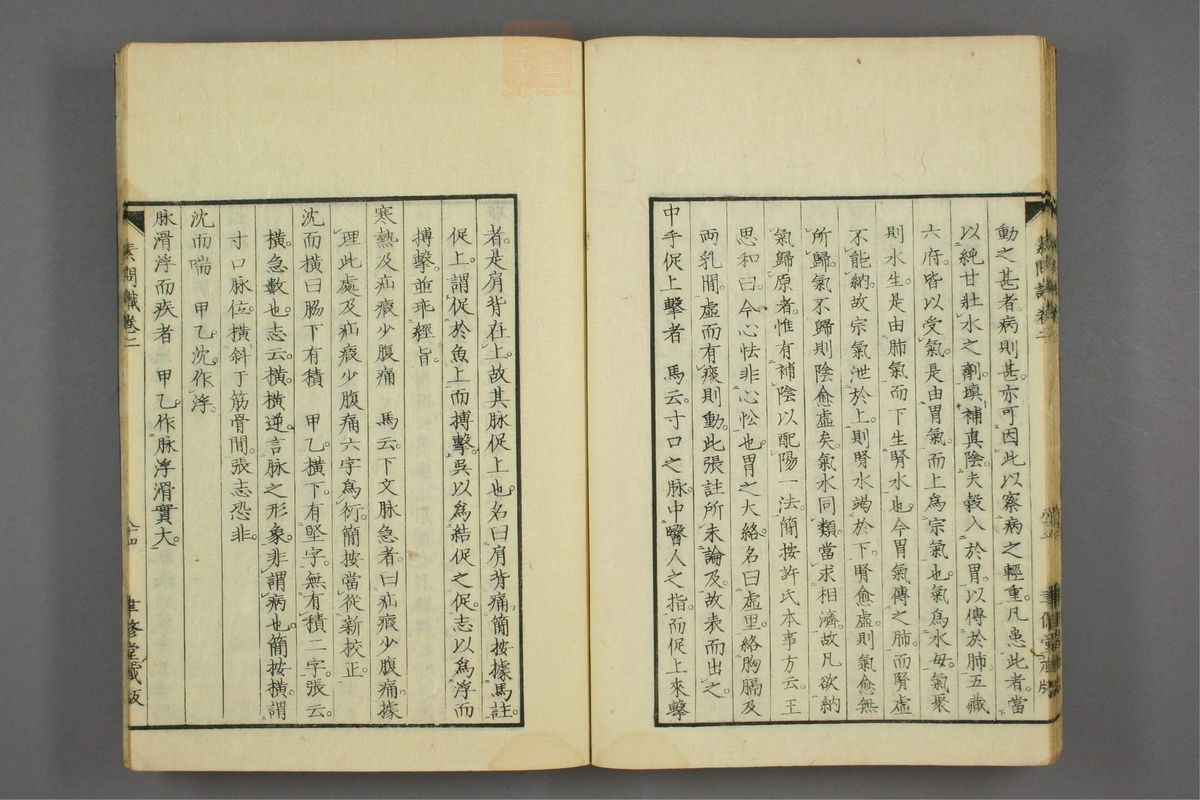 動之甚者病則甚亦可因此以察病之輕重凡患此者當
以純甘壯水之劑塡補真陰夫穀入於胃以傳於肺五藏
六府皆以受氣是由胃氣而上爲宗氣也氣爲水母氣聚
則水生是由肺氣而下生腎水也今胃氣傳之肺而腎虛
不能納故宗氣泄於上則腎水竭於下腎愈虛則氣愈無
所歸氣不歸則陰愈虛矣氣水同類當求相濟故凡欲納
氣歸原者惟有補陰以配陽一法簡按許氏本事方云王
思和曰今心怯非心忪也胃之大絡名曰虛里絡胸膈及
兩乳閒虛而有痰則動此張註所未論及故表而出之
中手促上擊者 馬云寸口之脉中醫人之指而促上來擊
者是肩背在上故其脉促上也名曰肩背痛簡按據馬註
促上謂促於魚上而搏擊吳以爲結促之促志以爲浮而
搏擊並乖經旨
寒熱及疝瘕少腹痛 馬云下文脉急者曰疝瘕少腹痛據
理此處及疝瘕少腹痛六字爲衍簡按當從新校正
沈而橫曰脇下有積 甲乙橫下有堅字無有積二字張云
橫急數也志云橫橫逆言脉之形象非謂病也簡按橫謂
寸口脉位橫斜于筋骨閒張志恐非
沈而喘 甲乙沈作浮
脉滑浮而疾者 甲乙作脉浮滑實大
素問識卷二
八十四
聿修堂藏版